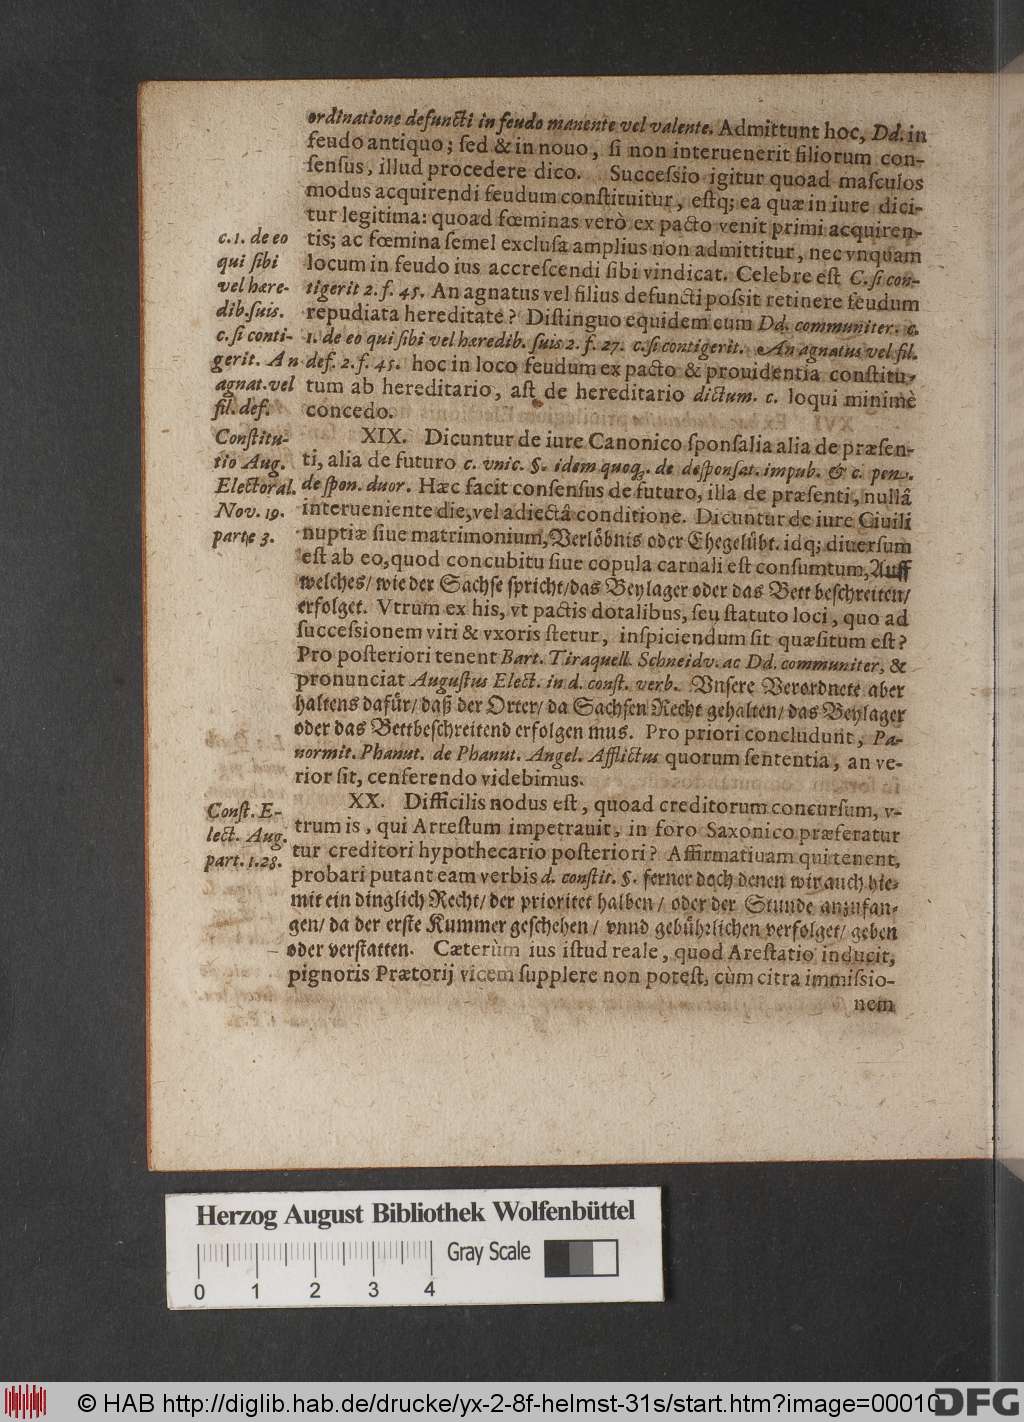 ordinatione defuncti in feudo manente vel valente. Admittunt hoc, Dd. in
feudo antiquo; ſed & in nouo, ſi non interuenerit filiorum con-
ſenſus, illud procedere dico. Succeſsio igitur quoad maſculos
modus acquirendi feudum conſtituitur, eſtq; ea quæ in iure dici-
tur legitima: quoad fœminas verò ex pacto venit primi acquiren-
tis; ac fœmina ſemel excluſa amplius non admittitur, nec vnquam
locum in feudo ius accreſcendi ſibi vindicat. Celebre eſt C. ſi con-
tigerit 2. f. 45. An agnatus vel filius defuncti poſsit retinere feudum
repudiata hereditate? Diſtinguo equidem cum Dd. communiter. c.
1. de eo qui ſibi vel hæredib. ſuis 2. f. 27. c. ſi contigerit. An agnatus vel fil.
def. 2. f. 45. hoc in loco feudum ex pacto & prouidentia conſtitu-
tum ab hereditario, aſt de hereditario dictum. c. loqui minimè
concedo.
c. 1. de eo
qui ſibi
vel hære-
dib. ſuis.
c. ſi conti-
gerit. An
agnat. vel
fil. def.
XIX. Dicuntur de iure Canonico ſponſalia alia de præſen-
ti, alia de futuro c. vnic. §. idem quoq;. de deſponſat. impub. & c. pen.
de ſpon. duor. Hæc facit conſenſus de futuro, illa de præſenti, nullâ
interueniente die, vel adiectâ conditione. Dicuntur de iure Ciuili
nuptiæ ſiue matrimonium, Verlöbnis oder Ehegelübt. idq; diuerſum
eſt ab eo, quod concubitu ſiue copula carnali eſt conſumtum, Auff
welches/ wie der Sachſe ſpricht/ das Beylager oder das Bett beſchreiten/
erfolget. Vtrum ex his, vt pactis dotalibus, ſeu ſtatuto loci, quo ad
ſucceſsionem viri & vxoris ſtetur, inſpiciendum ſit quæſitum eſt?
Pro poſteriori tenent Bart. Tiraquell. Schneidv. ac Dd. communiter, &
pronunciat Auguſtus Elect. in d. conſt. verb. Vnſere Verordnete aber
haltens dafür/ daß der Orter/ da Sachſen Recht gehalten/ das Beylager
oder das Bettbeſchreitend erfolgen mus. Pro priori concludunt, Pa-
normit. Phanut. de Phanut. Angel. Afflictus quorum ſententia, an ve-
rior ſit, cenſerendo videbimus.
Conſtitu-
tio Aug.
Electoral.
Nov. 19.
parte 3.
XX. Difficilis nodus eſt, quoad creditorum concurſum, v-
trum is, qui Arreſtum impetrauit, in foro Saxonico præferatur
tur creditori hypothecario poſteriori? Affirmatiuam qui tenent,
probari putant eam verbis d. conſtit. §. ferner doch denen wir auch hie-
mit ein dinglich Recht/ der prioritet halben/ oder der Stunde anzufan-
gen/ da der erſte Kummer geſchehen/ vnnd gebührlichen verfolget/ geben
oder verſtatten. Cæterùm ius iſtud reale, quod Areſtatio inducit,
pignoris Prætorij vicem ſupplere non poteſt, cùm citra immiſsio-
nem
Conſt. E-
lect. Aug.
part. 1. 28.
Herzog August Bibliothek Wolfenbüttel
Gray Scale
0 1 2 3 4
© HAB http://diglib.hab.de/drucke/yx-2-8f-helmst-31s/start.htm?image=00010
DFG